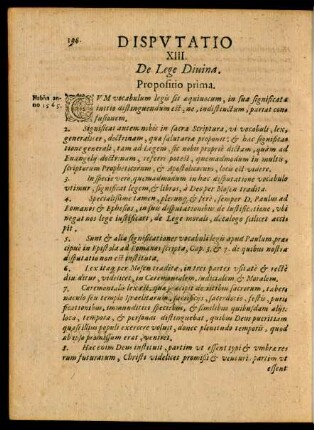 196.
DISPVTATIO
XIII.
De Lege Diuina.
Propositio prima.
Habita an-
no 1565.
CVM vocabulum legis sit aequiuocum, in sua significata
initio distinguendum est, ne, indistinctum, pariat con-
fusionem.
2. Significat autem nobis in sacra Scriptura, vi vocabuli, lex,
generaliter, doctrinam, quae salutaria proponit: & hac significa-
tione generali, tam ad Legem, sic nobis propriè dictam, quàm ad
Euangelij doctrinam, referri potest, quemadmodum in multis,
scriptorum Propheticorum, & Apostolicorum, locis est videre.
3. In specie vero, quemadmodum in hac disputatione vocabulo
vtimur, significat legem, & libros, à Deo per Mosen tradita.
4. Specialissimè tamen, plerunq; & ferè, semper D. Paulus ad
Romanos & Ephesios, in suis disputationibus de Iustificatione, vbi
negat nos lege iustificari, de Lege morali, decalogo scilicet acci-
pit.
5. Sunt & aliae significationes vocabuli legis apud Paulum, prae-
cipuè in Epistola ad Romanos scripta, Cap. 3. & 7. de quibus nostra
disputatio non est instituta.
6. Lex itaq; per Mosen tradita, in tres partes vsitatè & rectè
diuiditur, videlicet, in Ceremonialem, iudicialem & Moralem.
7. Ceremonialis lex est, quae praecipit de ritibus sacrorum, taber-
naculo seu templo Israëlitarum, sacrificijs, sacerdotio, festis, puri-
ficationibus, immunditiei speciebus, & similibus quibusdam alijs:
loca, tempora, & personas distinguebat, quibus Deus pueritiem
quasi illius populi exercere voluit, donec plenitudo temporis, quod
ab ipso promissum erat, veniret.
8. Haec enim Deus instituit, partim vt essent typi & vmbrae re-
rum futurarum, Christi videlicet promissi & venturi: partim vt
essent